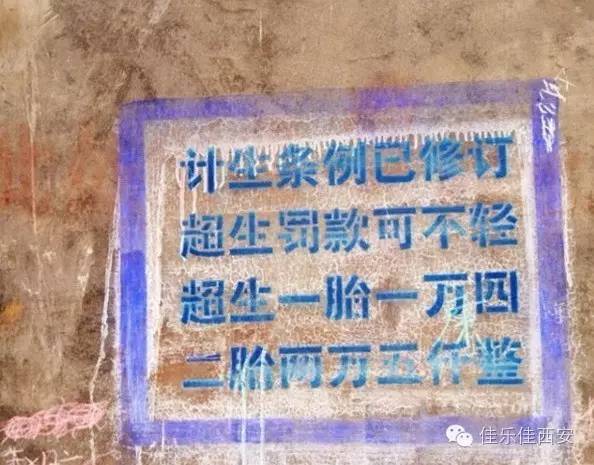 计生条例已修订
超生罚款可不轻
超生一胎一万四
二胎两万五仟整
佳乐佳西安